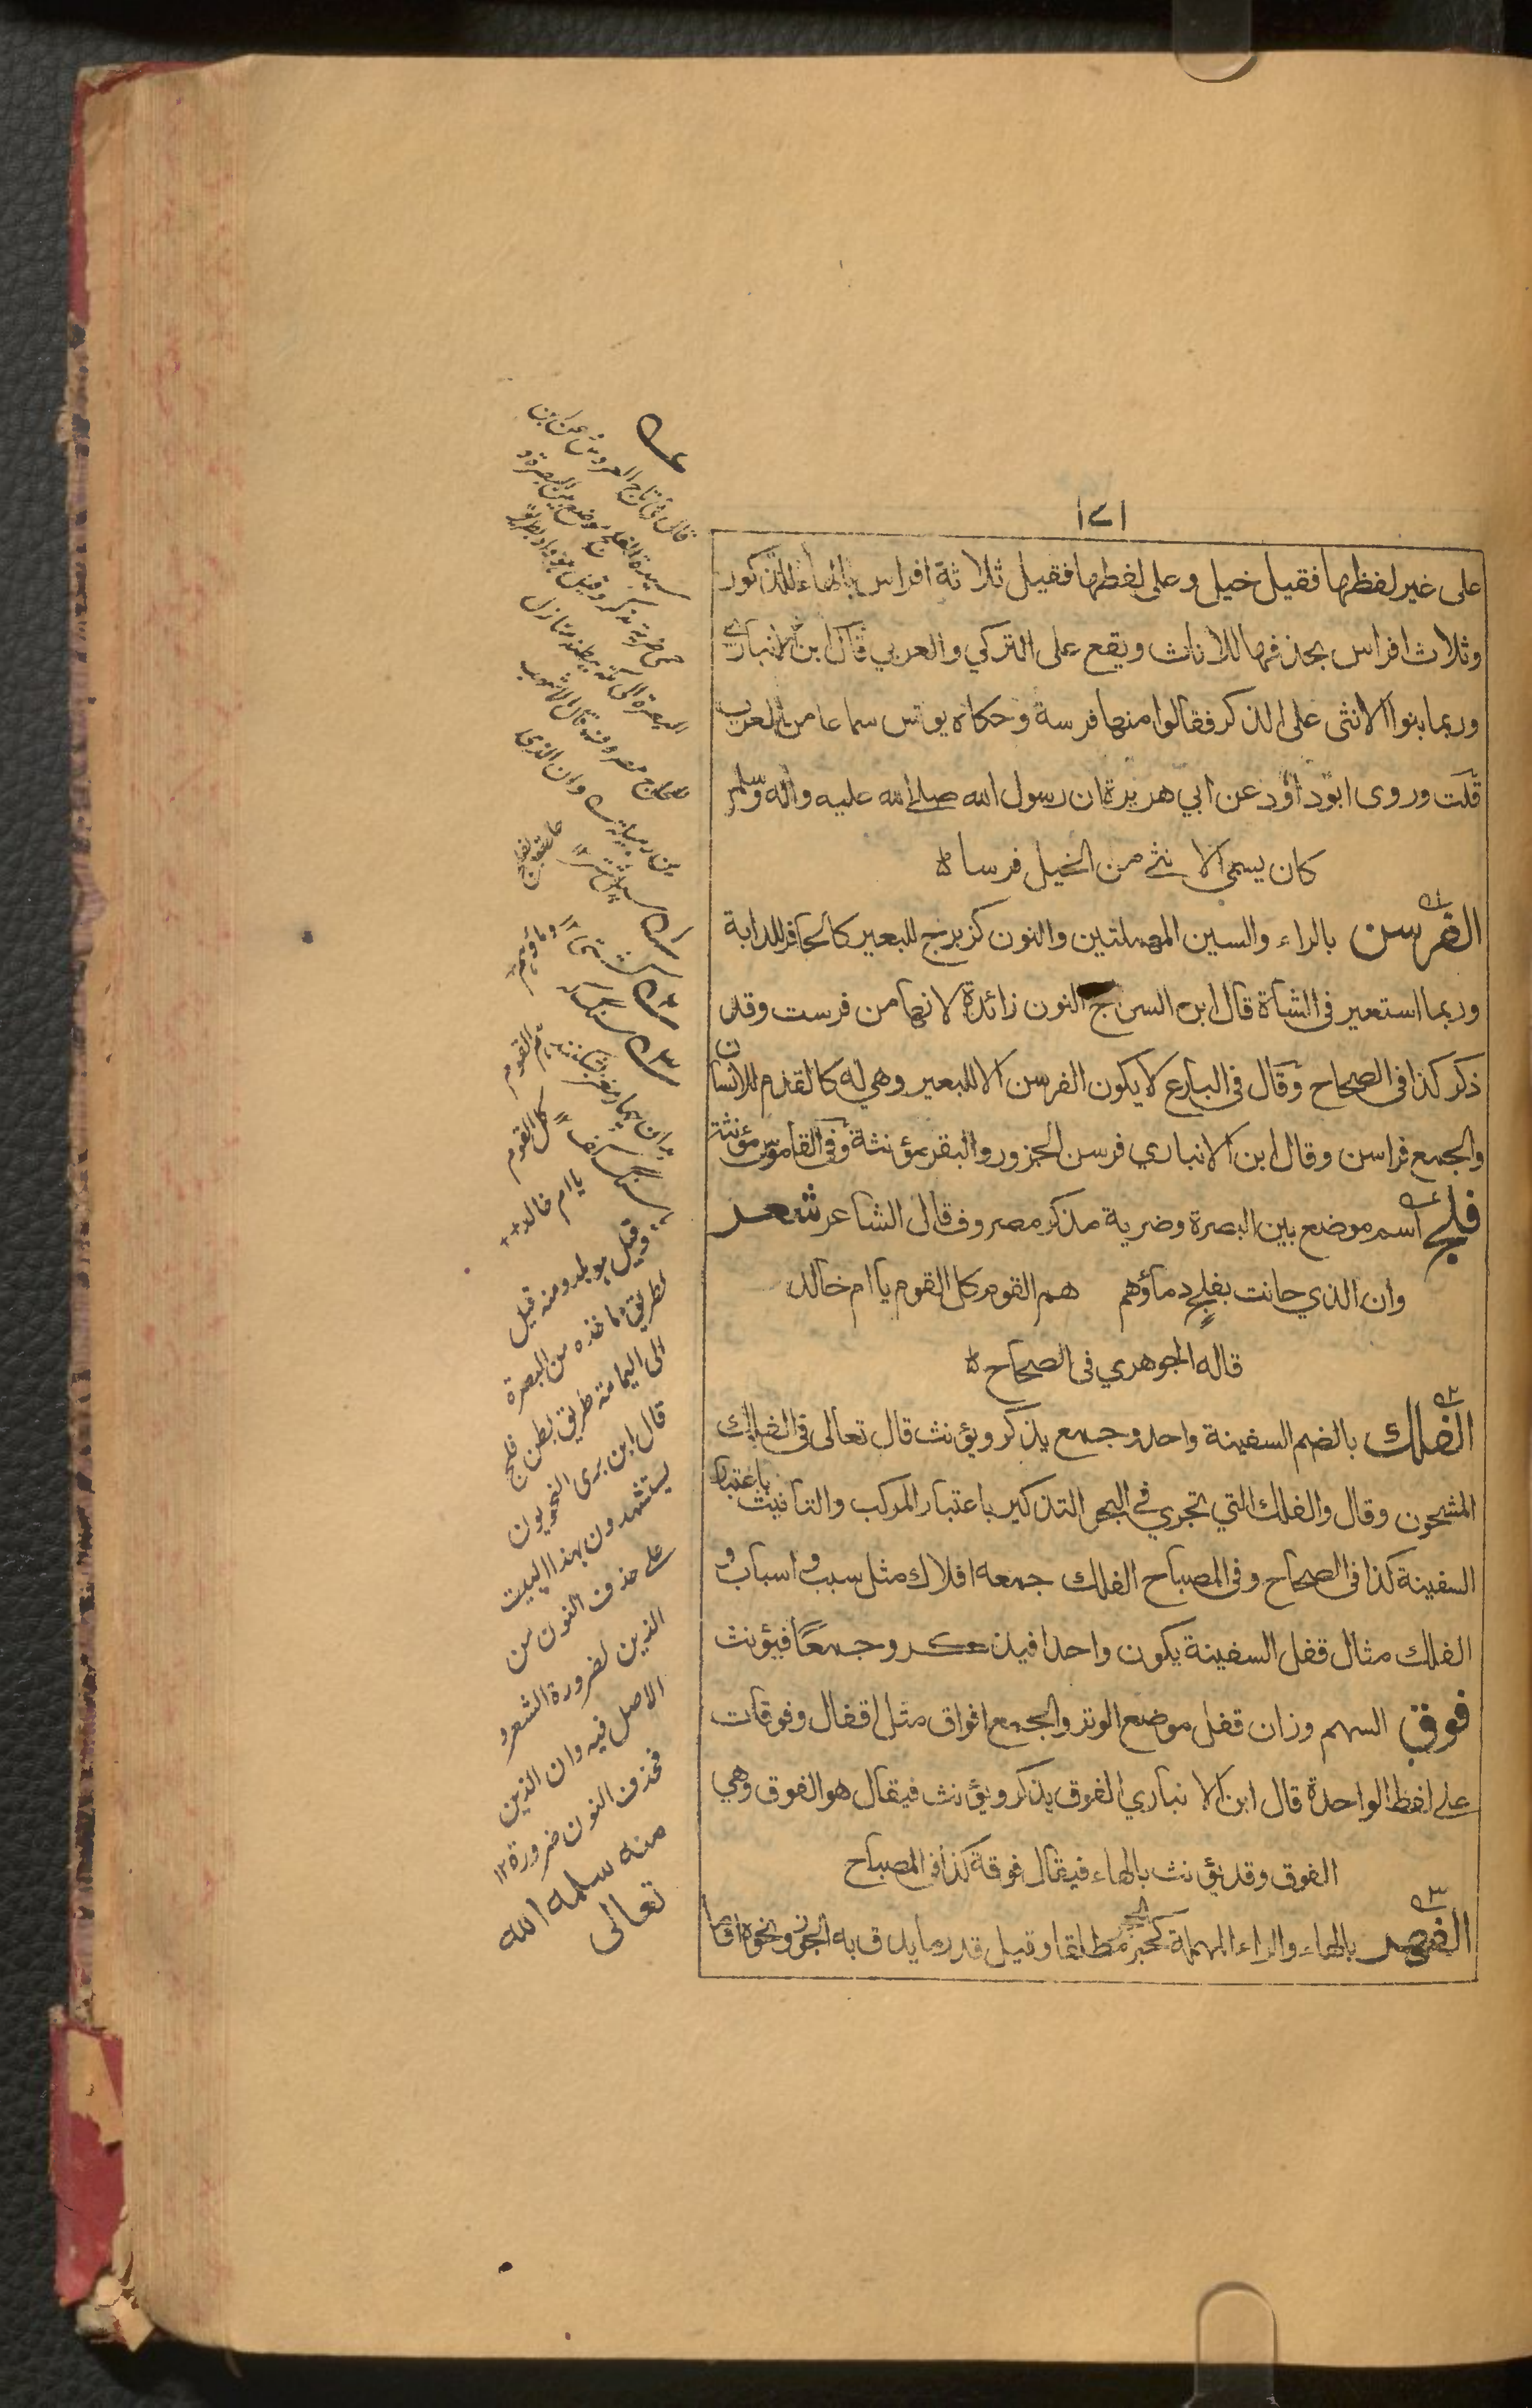 ١٧١
على غير لفظها فقيل خيل وعلى لفظها فقيل ثلاثة افراس بالهاء للذكور
وثلاث افراس بحذفها للاناث ويقع على التركي والعربي قال ابن الانباري
وربما بنوا الانثى على الذكر فقالوا منها فرسة وحكاه يونس سماعا من العرب
قلت وروى ابو داؤد عن ابي هريرة ان رسول الله صلى الله عليه واله وسلم
كان يسمى الانثى من الخيل فرسا
الفرسن بالراء والسين المهملتين والنون كزبرج للبعير كالحافر للدابة
وربما استعير فى الشاة قال ابن السراج النون زائدة لانها من فرست وقد
ذكر كذا فى الصحاح وقال فى البارع لا يكون الفرسن الا للبعير وهي له كالقدم للانسان
والجمع فراسن وقال ابن الانباري فرسن الجزور والبقر مؤنثة وفى القاموس مؤنثة
فلج اسم موضع بين البصرة وضرية مذكر مصروف قال الشاعر شعر
وان الذي حانت بفلج دماؤهم هم القوم كل القوم يا ام خالد
قاله الجوهري فى الصحاح
الفلك بالضم السفينة واحد وجمع يذكر ويؤنث قال تعالى فى الفلك
المشحون وقال والفلك التي تجري في البحر التذكير باعتبار المركب والتانيث باعتبار
السفينة كذا فى الصحاح وفى المصباح الفلك جمعه افلاك مثل سبب واسباب و
الفلك مثال قفل السفينة يكون واحدا فيذكر وجمعًا فيؤنث
فوق السهم وزان قفل موضع الوتر والجمع افواق مثل اقفال وفوقات
على لفظ الواحدة قال ابن الانباري الفوق يذكر ويؤنث فيقال هو الفوق وهي
الفوق وقد يؤنث بالهاء فيقال فوقة كذا فى المصباح
الفهر بالهاء والراء المهملة الحجر مطلقا وقيل قدر ما يدق به الجوز ونحوه
قال فى تاج العروس عن ابن
سيدة الفلج موضع بين البصرة و
حمى ضرية مذكر وقيل هو واد بطريق
البصرة الى مكة ببطنه منازل
للحاج مصروف قال الاشهب
بن رميلة وان الذى
حانت بفلج
دماؤهم
هم القوم
كل القوم
يا ام خالد
وقيل هو بلد ومنه قيل
لطريق ماخذه من البصرة
الى اليمامة طريق بطن فلج
قال ابن برى النحويون
يستشهدون بهذا البيت
على حذف النون من
الذين لضرورة الشعر و
الاصل فيه وان الذين
فحذف النون ضرورة ١٢
منه سلمه الله
تعالى